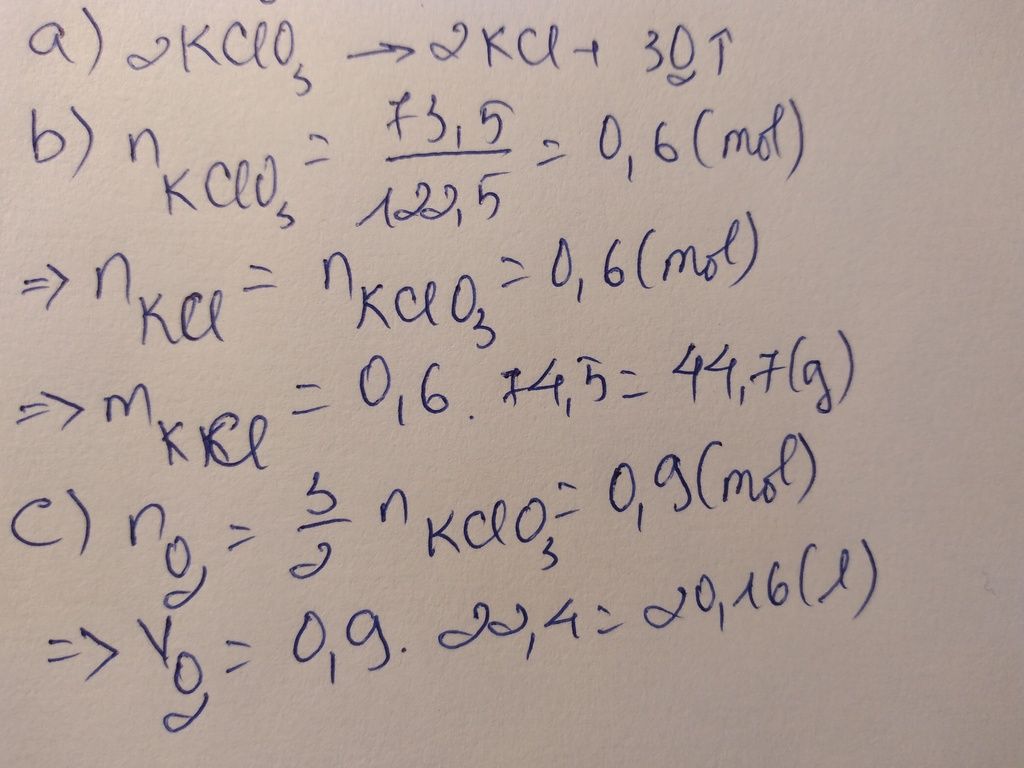 a) 2KClO₃ → 2KCl + 3O₂↑
b) n_KClO₃ = 73,5/122,5 = 0,6 (mol)
=> n_KCl = n_KClO₃ = 0,6 (mol)
=> m_KCl = 0,6 . 74,5 = 44,7 (g)
c) n_O₂ = 3/2 n_KClO₃ = 0,9 (mol)
=> V_O₂ = 0,9 . 22,4 = 20,16 (l)